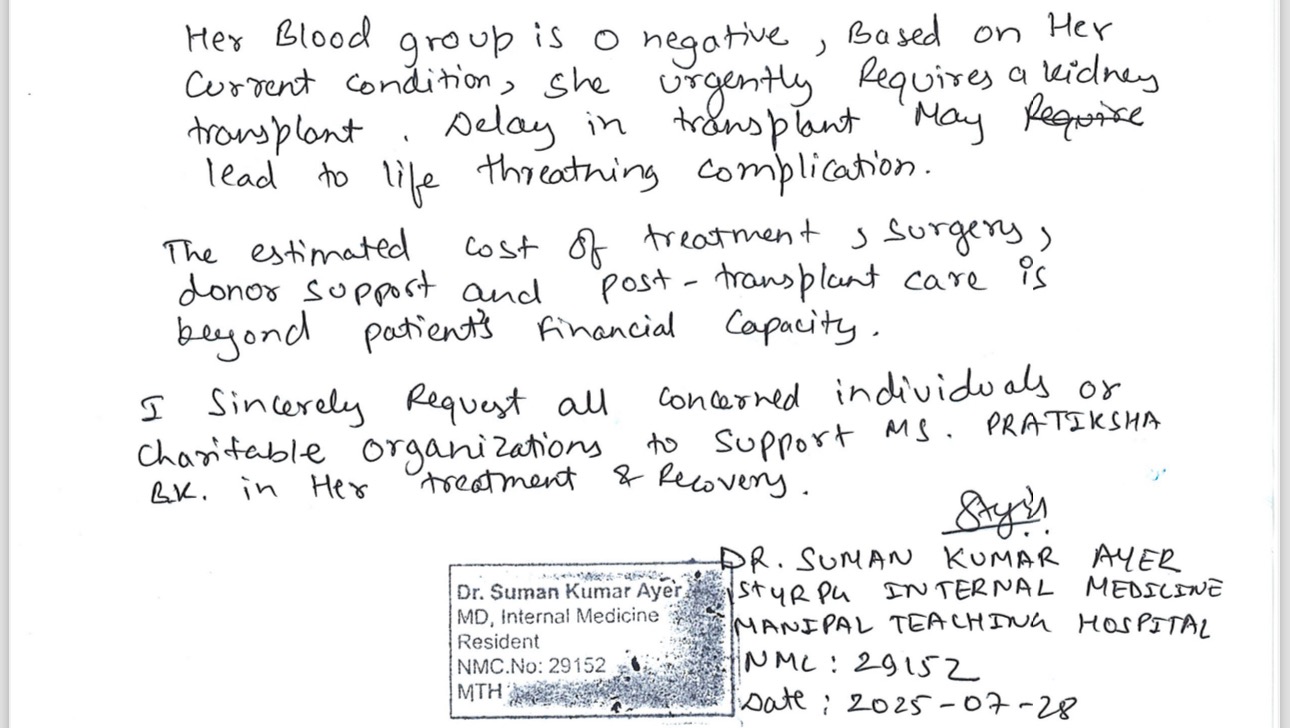 Her Blood group is O negative, Based on Her
Current condition, she urgently Requires a kidney
transplant. Delay in transplant May Require
lead to life threatning complication.
The estimated cost of treatment, surgery,
donor support and post-transplant care is
beyond patient's Financial Capacity.
I Sincerely Request all concerned individuals or
charitable organizations to support MS. PRATIKSHA
B.K. in Her treatment & Recovery.
DR. SUMAN KUMAR AYER
1st YR PG INTERNAL MEDICINE
MANIPAL TEACHING HOSPITAL
NMC: 29152
Date: 2025-07-28
Dr. Suman Kumar Ayer
MD, Internal Medicine
Resident
NMC.No: 29152
MTH